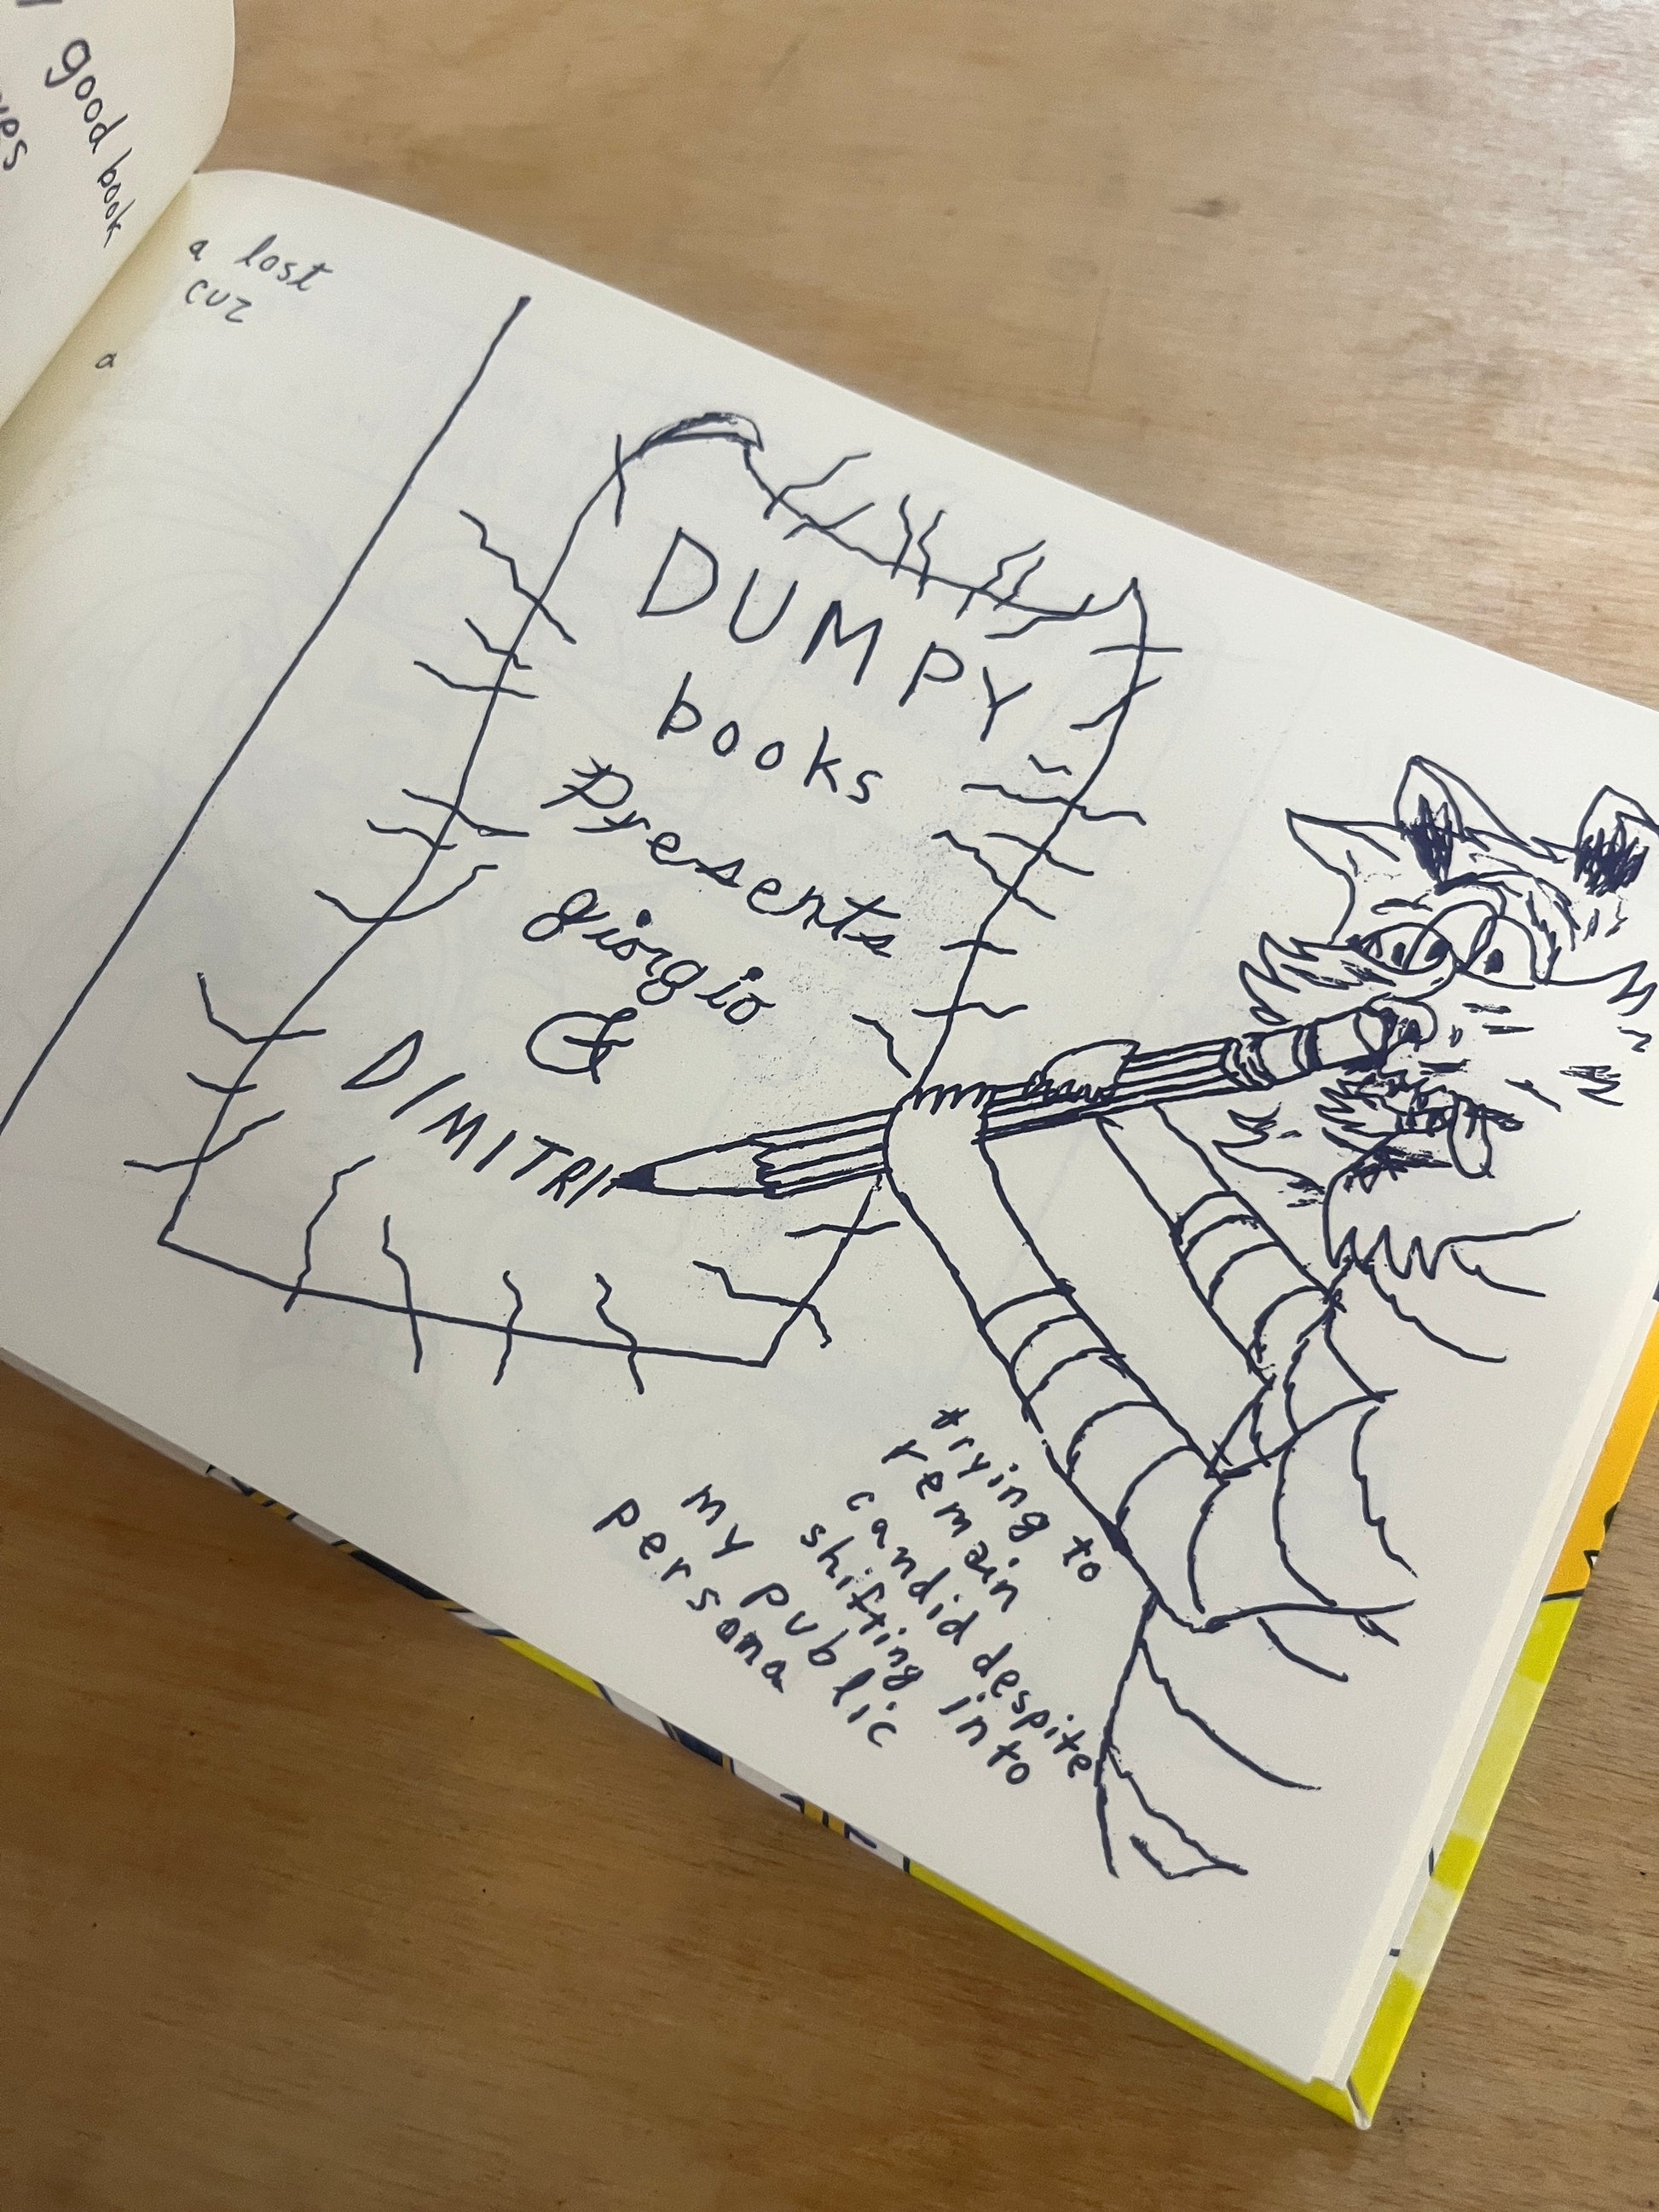 good book
a lost
cuz
a
DUMPY
books
Presents
giorgio
&
DIMITRI
trying to
remain
candid despite
shifting into
my public
persona